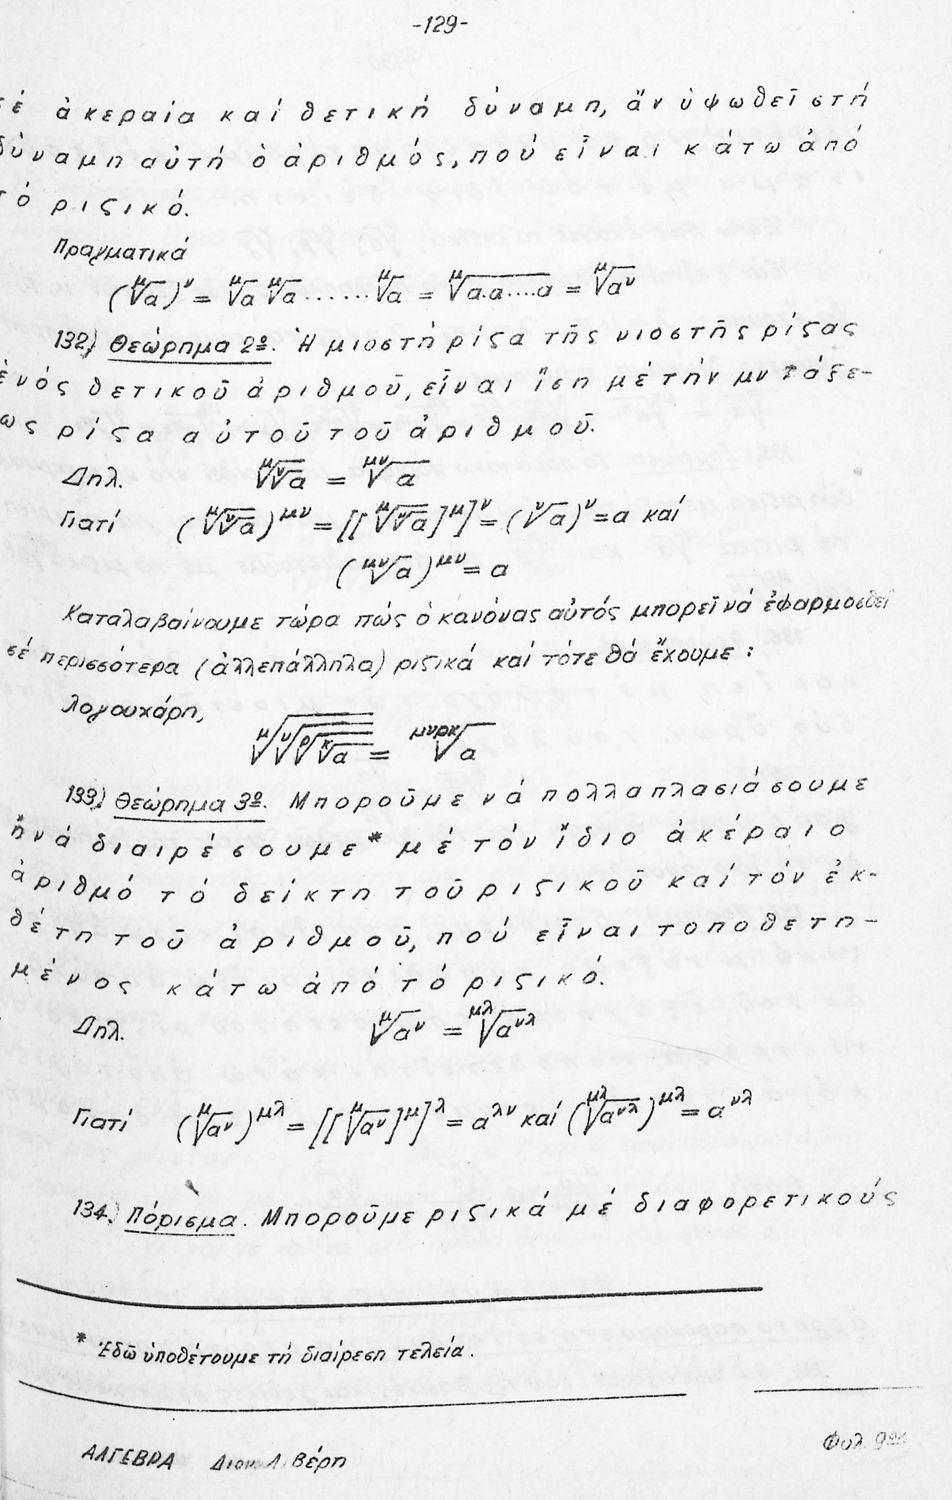 -129-
σέ ἀκεραία καί θετική δύναμη, ἄν ὑψωθεῖ στή
δύναμη αὐτή ὁ ἀριθμός, πού εἶναι κάτω ἀπό
τό ριζικό.
Πραγματικά
(ᵘ√α)ᵛ = ᵘ√α ᵘ√α ...... ᵘ√α = ᵘ√α.α....α = ᵘ√αᵛ
132) Θεώρημα 2º. Ἡ μιοστή ρίζα τῆς νιοστῆς ρίζας
ἑνός θετικοῦ ἀριθμοῦ, εἶναι ἴση μέ τήν μν τάξε-
ως ρίζα αὐτοῦ τοῦ ἀριθμοῦ.
Δηλ. ᵘ√ᵛ√α = ᵘᵛ√α
Γιατί (ᵘ√ᵛ√α)ᵘᵛ = [[ᵘ√ᵛ√α]ᵘ]ᵛ = (ᵛ√α)ᵛ = α καί
(ᵘᵛ√α)ᵘᵛ = α
Καταλαβαίνουμε τώρα πώς ὁ κανόνας αὐτός μπορεῖ νά ἐφαρμοσθεῖ
σέ περισσότερα (ἀλλεπάλληλα) ριζικά καί τότε θά ἔχουμε :
λογουχάρη,
μ√ν√ρ√κ√α = μνρκ√α
133) Θεώρημα 3º. Μποροῦμε νά πολλαπλασιάσουμε
ἤ νά διαιρέσουμε* μέ τόν ἴδιο ἀκέραιο
ἀριθμό τό δείκτη τοῦ ριζικοῦ καί τόν ἐκ-
θέτη τοῦ ἀριθμοῦ, πού εἶναι τοποθετη-
μένος κάτω ἀπό τό ριζικό.
Δηλ. μ√α^ν = μλ√α^νλ
Γιατί (μ√α^ν)^μλ = [[μ√α^ν]^μ]^λ = α^λν καί (μλ√α^νλ)^μλ = α^νλ
134.) Πόρισμα. Μποροῦμε ριζικά μέ διαφορετικούς
* Ἐδῶ ὑποθέτουμε τή διαίρεση τελεία.
ΑΛΓΕΒΡΑ Διον. Λ. Βέρη
Φυλ. 9ον